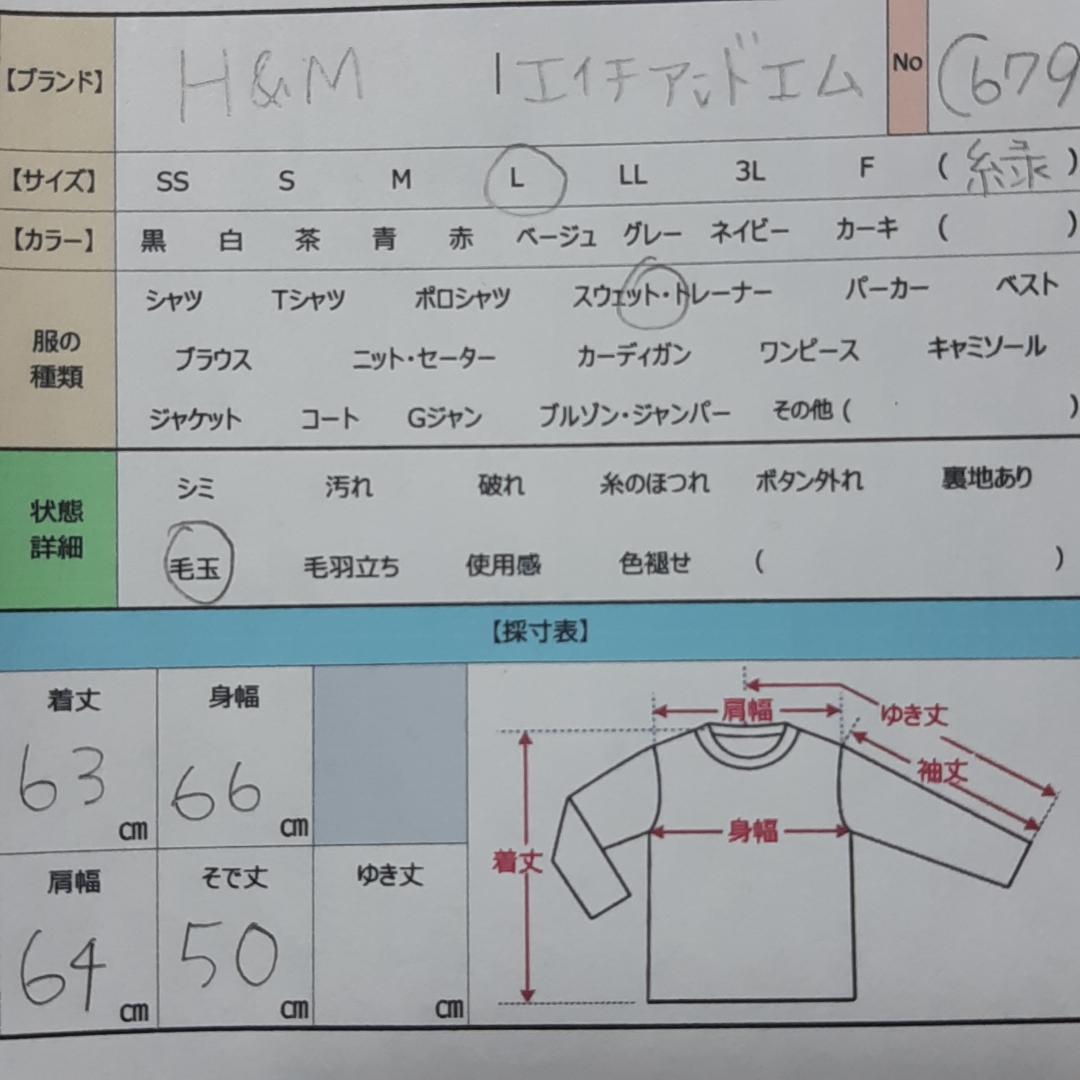 【ブランド】 H&M エイチアンドエム No (679
【サイズ】 SS S M L LL 3L F (緑)
【カラー】 黒 白 茶 青 赤 ベージュ グレー ネイビー カーキ ( )
服の種類
シャツ Tシャツ ポロシャツ スウェット・トレーナー パーカー ベスト
ブラウス ニット・セーター カーディガン ワンピース キャミソール
ジャケット コート Gジャン ブルゾン・ジャンパー その他 ( )
状態詳細
シミ 汚れ 破れ 糸のほつれ ボタン外れ 裏地あり
毛玉 毛羽立ち 使用感 色褪せ ( )
【採寸表】
着丈 身幅
63cm 66cm
肩幅 そで丈 ゆき丈
64cm 50cm cm
肩幅 ゆき丈
袖丈
身幅
着丈